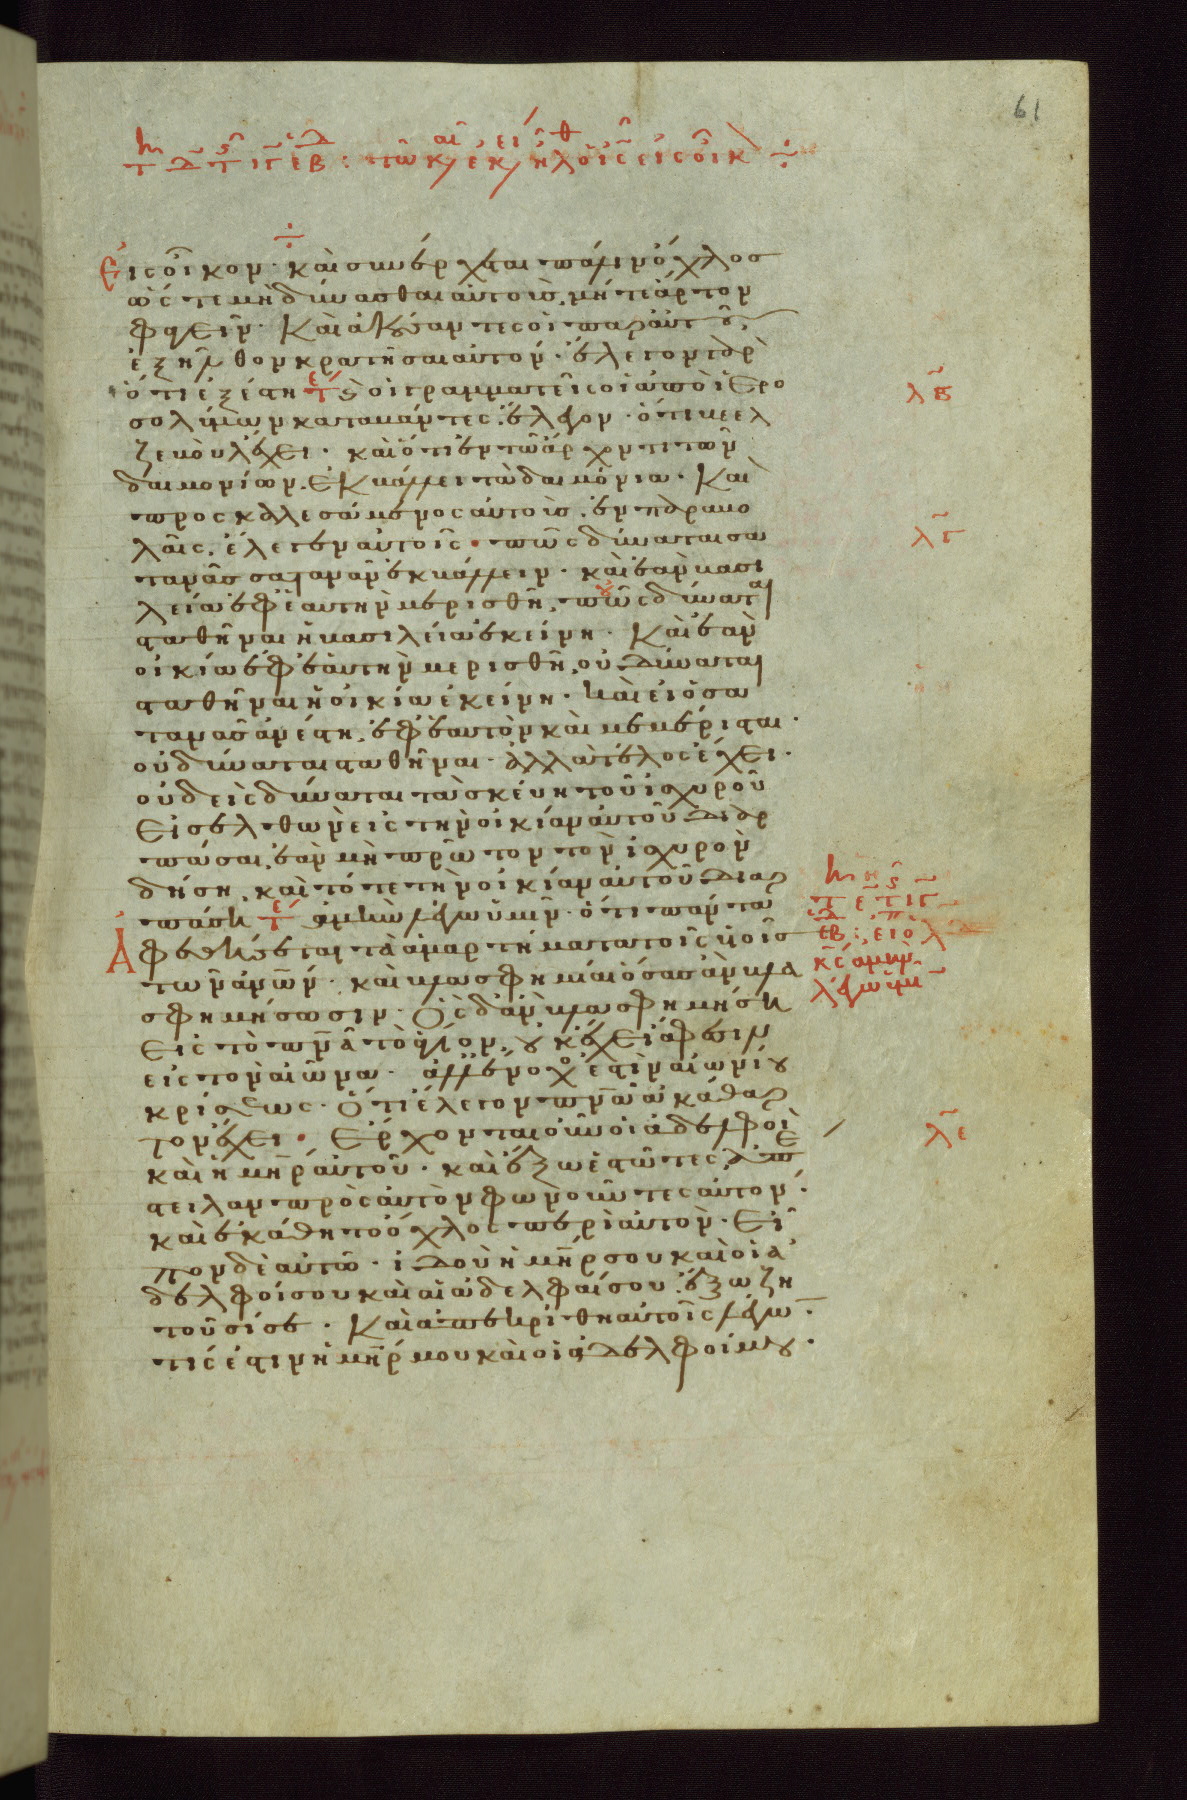 61
Εἰς οἶκον· καὶ συνέρχεται πάλιν ὄχλος
ὥστε μὴ δύνασθαι αὐτοὺς μήτε ἄρτον
φαγεῖν· Καὶ ἀκούσαντες οἱ παρ' αὐτοῦ,
ἐξῆλθον κρατῆσαι αὐτόν· ἔλεγον γὰρ
ὅτι ἐξέστη οἱ γραμματεῖς οἱ ἀπὸ ἱερο
σολύμων καταβάντες ἔλεγον· ὅτι βεελ
ζεβοὺλ ἔχει· καὶ ὅτι ἐν τῷ ἄρχοντι τῶν
δαιμονίων ἐκβάλλει τὰ δαιμόνια· Καὶ
προσκαλεσάμενος αὐτοὺς ἐν παραβο
λαῖς, ἔλεγεν αὐτοῖς· πῶς δύναται σα
τανᾶς σατανᾶν ἐκβάλλειν· καὶ ἐὰν βασι
λεία ἐφ' ἑαυτὴν μερισθῇ, πῶς δύναται
σταθῆναι ἡ βασιλεία ἐκείνη· Καὶ ἐὰν
οἰκία ἐφ' ἑαυτὴν μερισθῇ, οὐ δύναται
σταθῆναι ἡ οἰκία ἐκείνη· καὶ εἰ ὁ σα
τανᾶς ἀνέστη ἐφ' ἑαυτὸν καὶ μεμέρισται·
οὐ δύναται σταθῆναι· ἀλλὰ τέλος ἔχει·
οὐδεὶς δύναται τὰ σκεύη τοῦ ἰσχυροῦ
εἰσελθὼν εἰς τὴν οἰκίαν αὐτοῦ διαρ
πάσαι, ἐὰν μὴ πρῶτον τὸν ἰσχυρὸν
δήσῃ, καὶ τότε τὴν οἰκίαν αὐτοῦ διαρ
πάσῃ ἀμὴν λέγω ὑμῖν· ὅτι πάντα
ἀφεθήσεται τὰ ἁμαρτήματα τοῖς υἱοῖς
τῶν ἀνων· καὶ βλασφημίαι ὅσας ἂν βλα
σφημήσωσιν· Ὃς δ' ἂν βλασφημήσῃ
εἰς τὸ πνα τὸ ἅγιον, οὐκ ἔχει ἄφεσιν
εἰς τὸν αἰῶνα· ἀλλ' ἔνοχος ἐστὶν αἰωνίου
κρίσεως· Ὅτι ἔλεγον πνα ἀκάθαρ
τον ἔχει· Ἔρχονται οὖν οἱ ἀδελφοὶ
καὶ ἡ μηρ αὐτοῦ· καὶ ἔξω ἑστῶτες ἀπέ
στειλαν πρὸς αὐτὸν φωνοῦντες αὐτόν·
καὶ ἐκάθητο ὄχλος περὶ αὐτὸν· Εἶ
πον δὲ αὐτῷ· ἰδοὺ ἡ μηρ σου καὶ οἱ ἀ
δελφοί σου καὶ αἱ ἀδελφαί σου ἔξω ζη
τοῦσί σε· Καὶ ἀπεκρίθη αὐτοῖς λέγων·
τίς ἐστιν ἡ μηρ μου καὶ οἱ ἀδελφοί μου·
λβ
λγ
λε